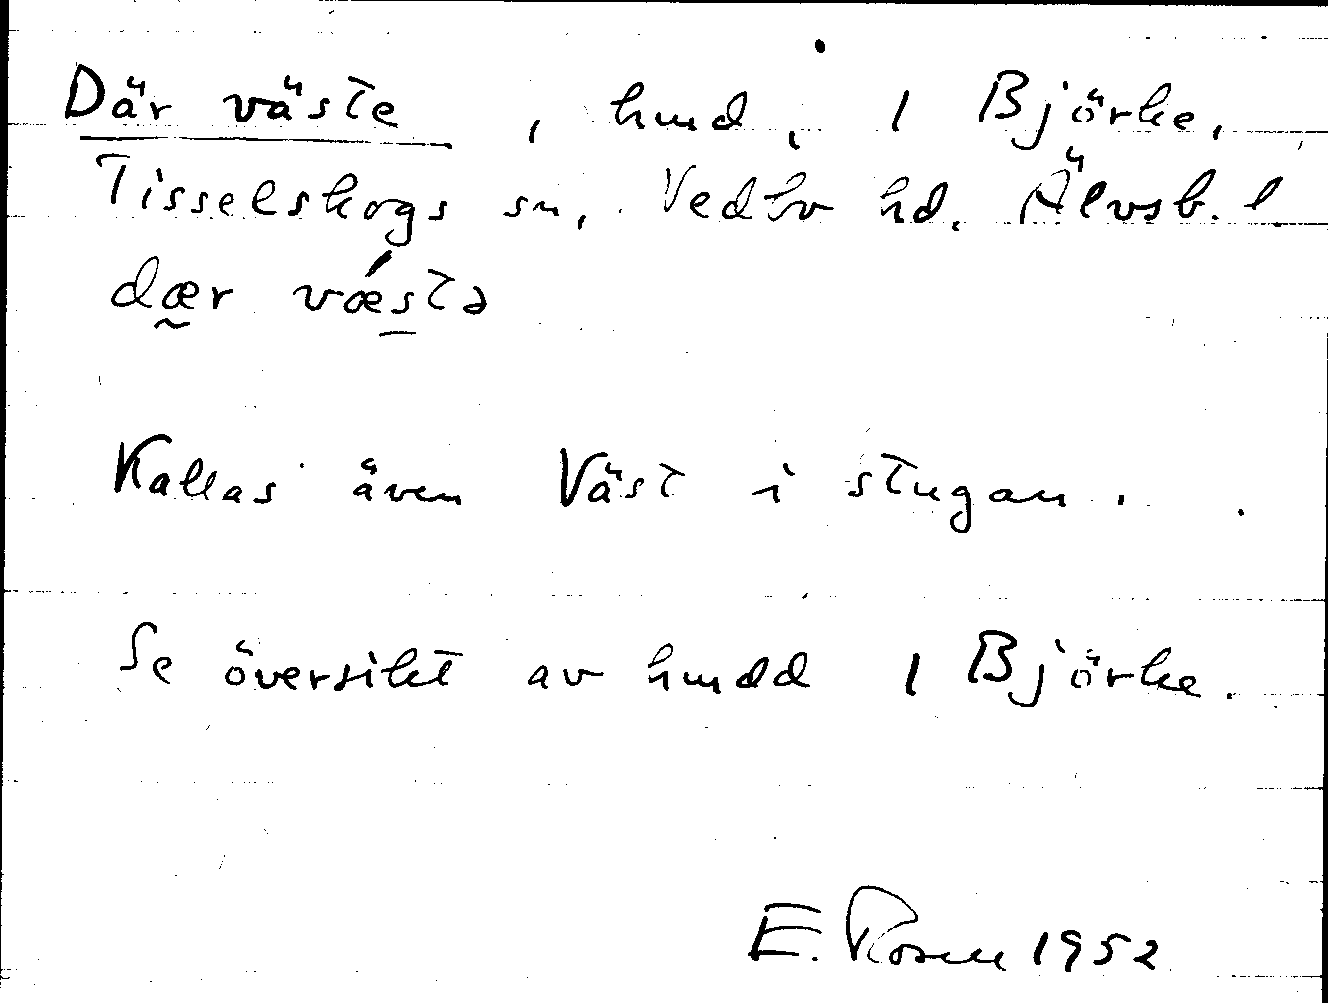 Där väste, hmd, 1 Björke,
Tisselskogs sn, Vedbo hd, Älvsb. l.
dær vǽstə
Kallas även Väst i stugan.
Se översikt av hmdd 1 Björke.
E. Rosell 1952